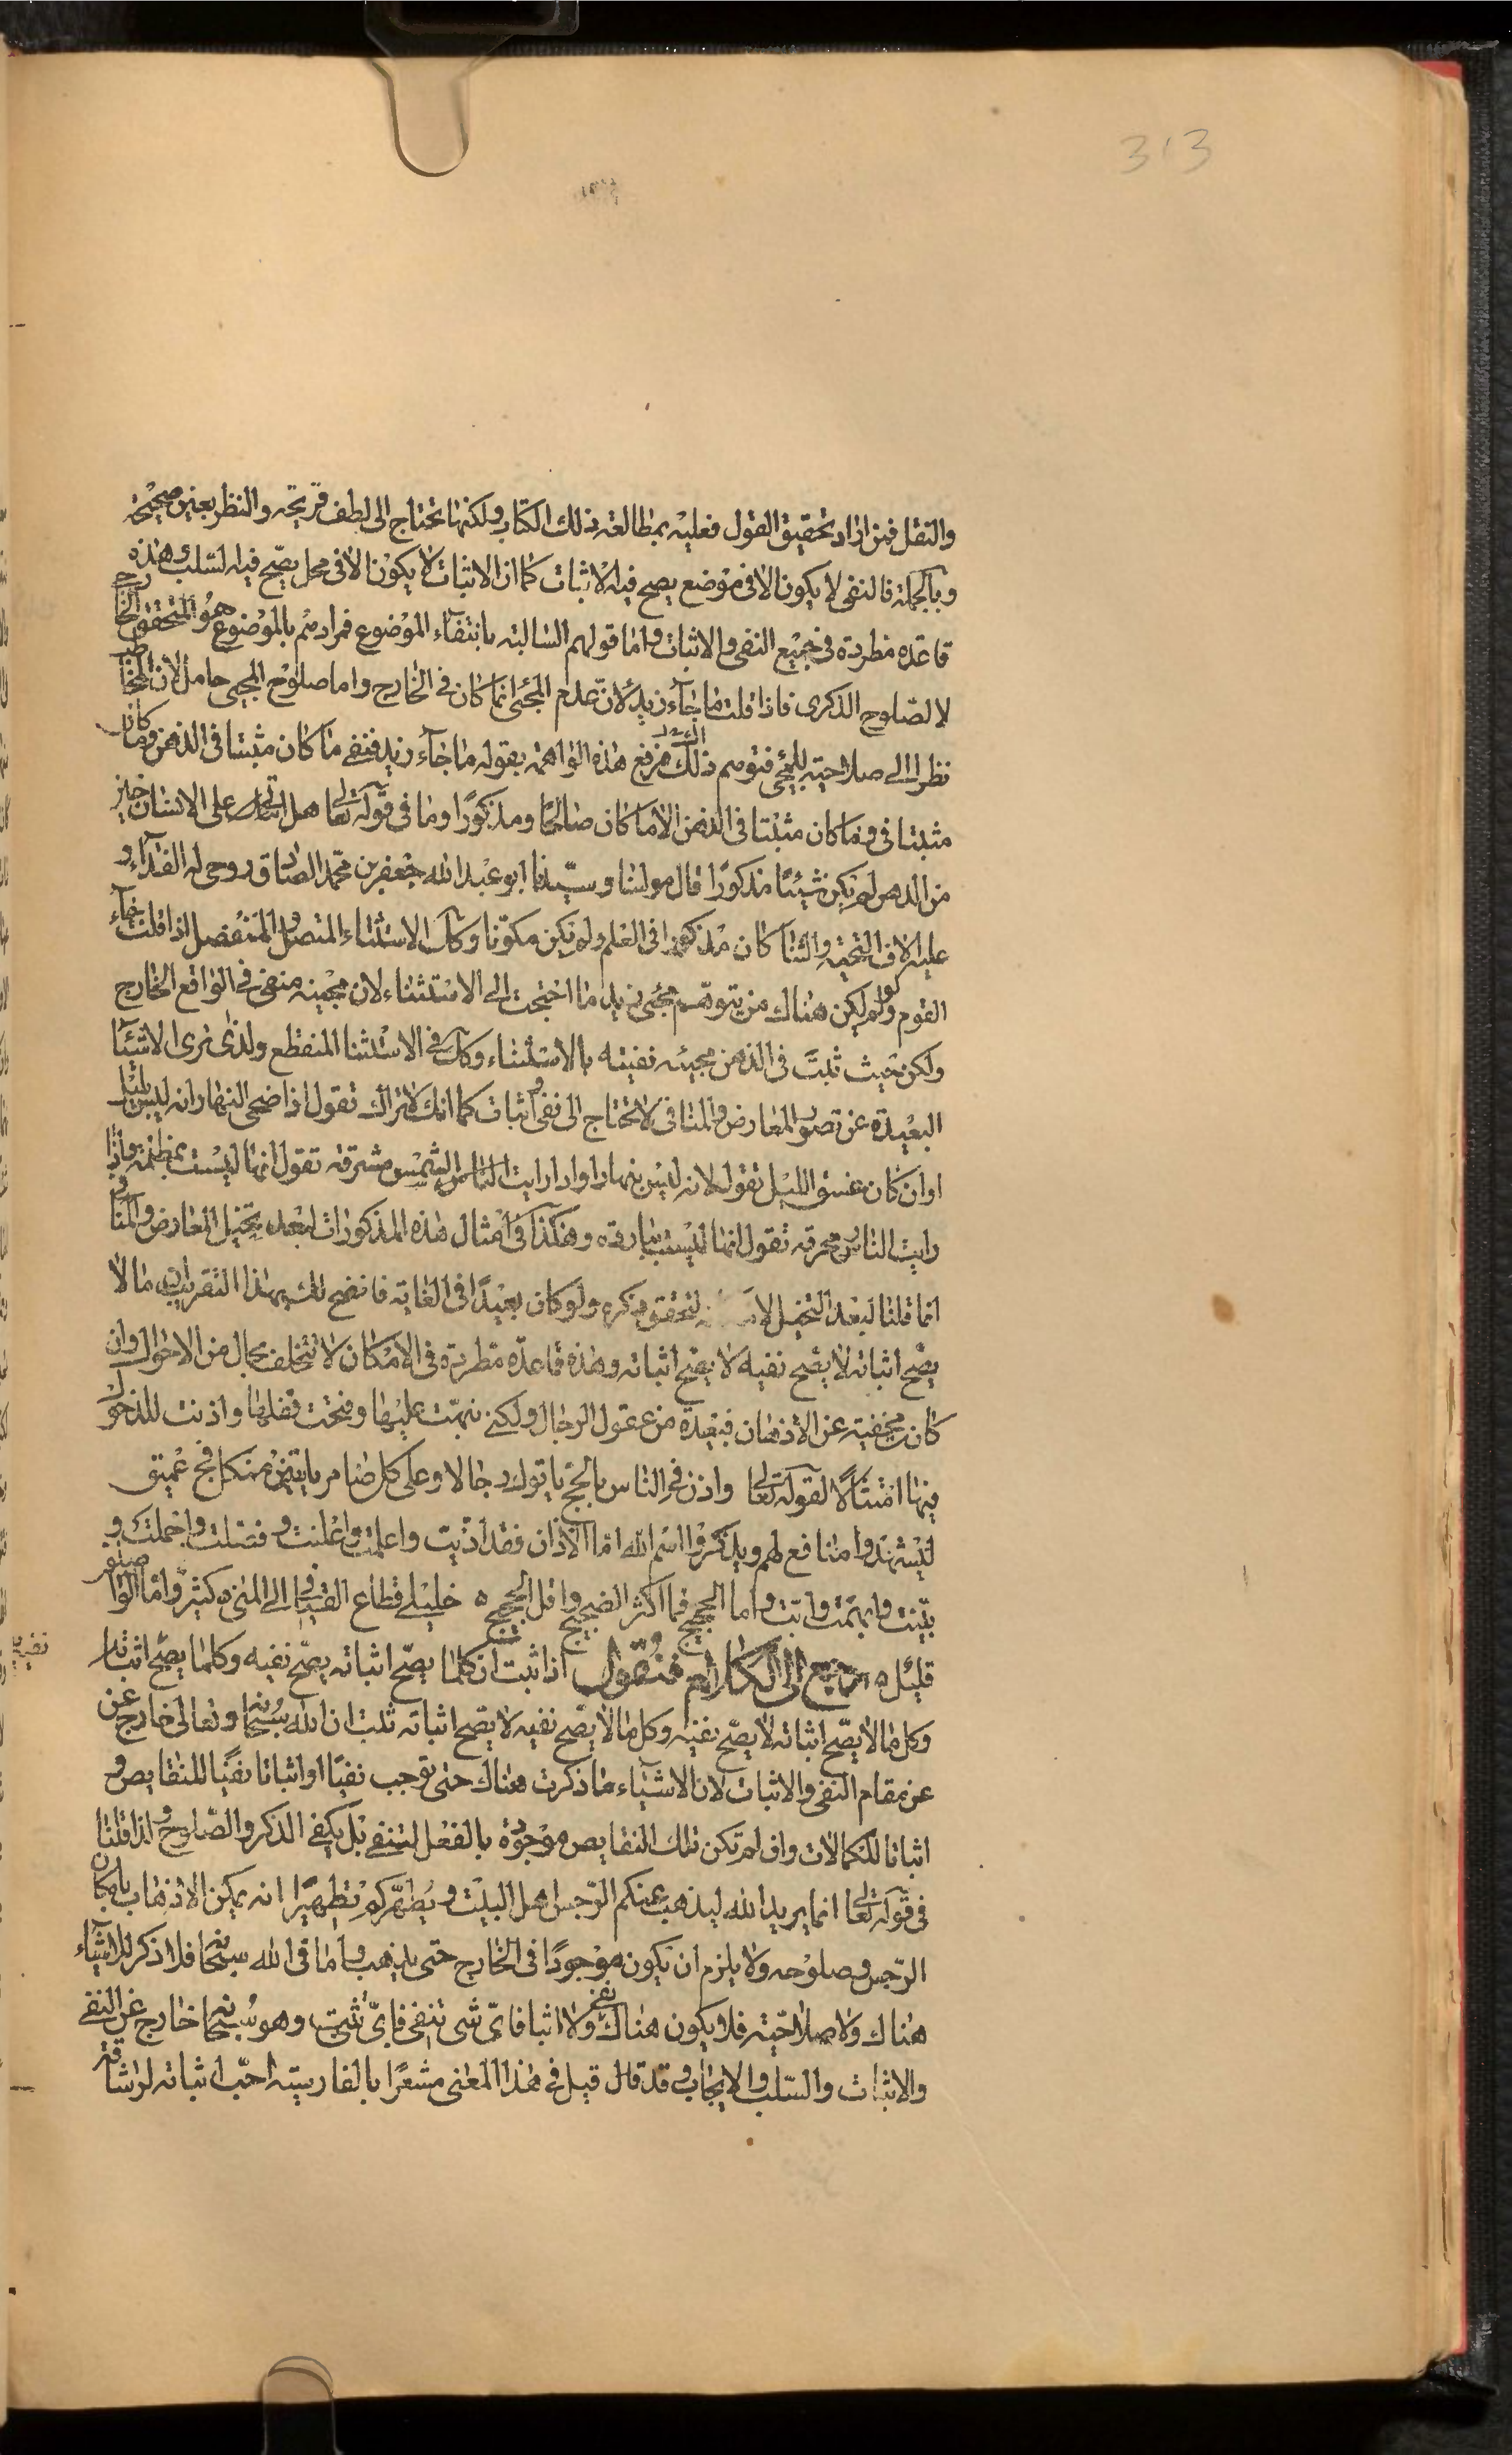 313
والنقل فمن اراد تحقيق القول فعليه بمطالعة ذلك الكتاب ولكنها تحتاج الى لطف قريحة والنظر بعين صحيحة
وبالجملة فالنفى لا يكون الا فى موضع يصح فيه الاثبات كما ان الاثبات لا يكون الا فى محل يصح فيه السلب وهذه
قاعدة مطردة فى جميع النفى والاثبات واما قولهم السالبة بانتفاء الموضوع فمرادهم بالموضوع هو المتحقق الخارجى
لا الصلوح الذكرى فاذا قلت ما جاء زيد لان عدم المجئ انما كان فى الخارج واما صلوح المجيى حاصل لان المخاطب
نظرا الى صلاحيته للمجيى فتوهم ذلك فرفع هذه الواهمة بقوله ما جاء زيد فنفى ما كان مثبتا فى الذهن وما كان
مثبتا فى وما كان مثبتا فى الذهن الا ما كان صالحا ومذكورًا وما فى قوله تعالى هل اتى على الانسان حين
من الدهر لم يكن شيئًا مذكورًا قال مولنا وسيدنا ابو عبد الله جعفر بن محمد الصادق روحى له الفداء و
عليه الاف التحية والثنا كان مذكورا فى العلم ولم يكن مكونا وكذلك الاستثناء المتصل والمنفصل اذا قلت جاء
القوم ولو لم يكن هناك من يتوهم مجئ زيد ما احتجت الى الاستثناء لان مجيئه منفى فى الواقع الخارج
ولكن حيث ثبت فى الذهن مجيئه نفيته بالاستثناء وكذلك فى الاستثنا المنقطع ولذى نرى الاشياء
البعيدة عن تصور المعارض والمنافى لا تحتاج الى نفى واثبات كما انك لا تراك تقول اذا ضحى النهار انه ليس بليل
او ان كان غسق الليل تقول لانه ليس بنهار او اذا رايت الناس الشمس مشرقة تقول انها ليست بمظلمة واذا
رايت النار محرقة تقول انها ليست بباردة وهكذا فى امثال هذه المذكورات لبعد تخيل المعارض والمنافى و
انما قلنا لبعد التخيل لتحقق ذكره ولو كان بعيدًا فى الغاية فاتضح لك بهذا التقريب ان ما لا
يصح اثباته لا يصح نفيه لا يصح اثباته وهذه قاعدة مطردة فى الامكان لا تتخلف بحال من الاحوال وان
كان مخفية عن الاذهان فبعيدة من عقول الرجال ولكنى نبهت عليها وفتحت قفلها واذنت للدخول
فيها امتثالًا لقوله تعالى واذن فى الناس بالحج ياتوك رجالا وعلى كل ضامر ياتين من كل فج عميق
ليشهدوا منافع لهم ويذكروا اسم الله اما الاذان فقد اذنت واعلمت واعلنت وفصلت واجملت و
بينت وابهمت وابت واما الحجيج فما اكثر الضجيج واقل الحجيج ه خليلى قطاع الفيافى الى الحمى كثير واما الواصلون
قليل ه نرجع الى الكلام فنقول اذا ثبت ان كلما يصح اثباته يصح نفيه وكلما يصح اثباته
وكل ما لا يصح اثباته لا يصح نفيه وكل ما لا يصح نفيه لا يصح اثباته ثبت ان الله سبحانه وتعالى خارج عن
عن مقام النفى والاثبات لان الاشياء ما ذكرت هناك حتى توجب نفيًا او اثباتا نفيًا للنقايص و
اثباتا للكمالات وان لم تكن تلك النقايص موجودة بالفعل لتنفى بل يكفى الذكر والصلوح ولذا قلنا
فى قوله تعالى انما يريد الله ليذهب عنكم الرجس اهل البيت ويطهركم تطهيرًا انه يمكن الاذهاب بامكان
الرجس وصلوحه ولا يلزم ان يكون موجودًا فى الخارج حتى يذهب واما فى الله سبحانه فلا ذكر للاشياء
هناك ولا صلاحية فلا يكون هناك نفى ولا اثبات فاى شى تنفى فاى تثبت وهو سبحانه خارج عن النفى
والاثبات والسلب والايجاب وقد قال قيل فى هذا المعنى مشعرًا بالفارسية احب اثباته لرشاقته